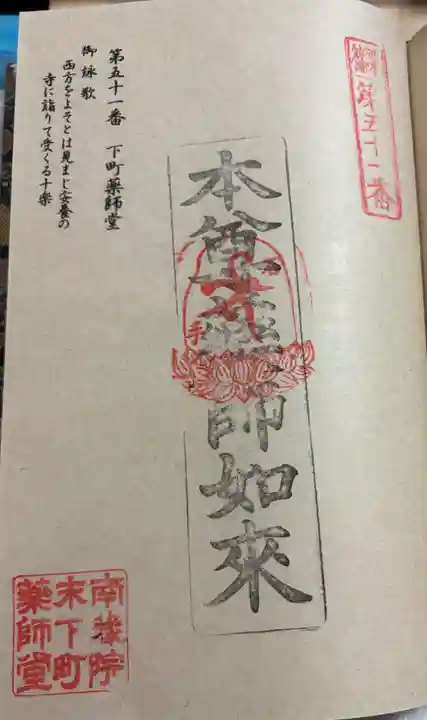 第五十一番
本尊薬師如來
第五十一番　下町藥師堂
御詠歌
西方をよそとは見まじ安養の
寺に詣りて受くる十樂
南養院
末下町
藥師堂